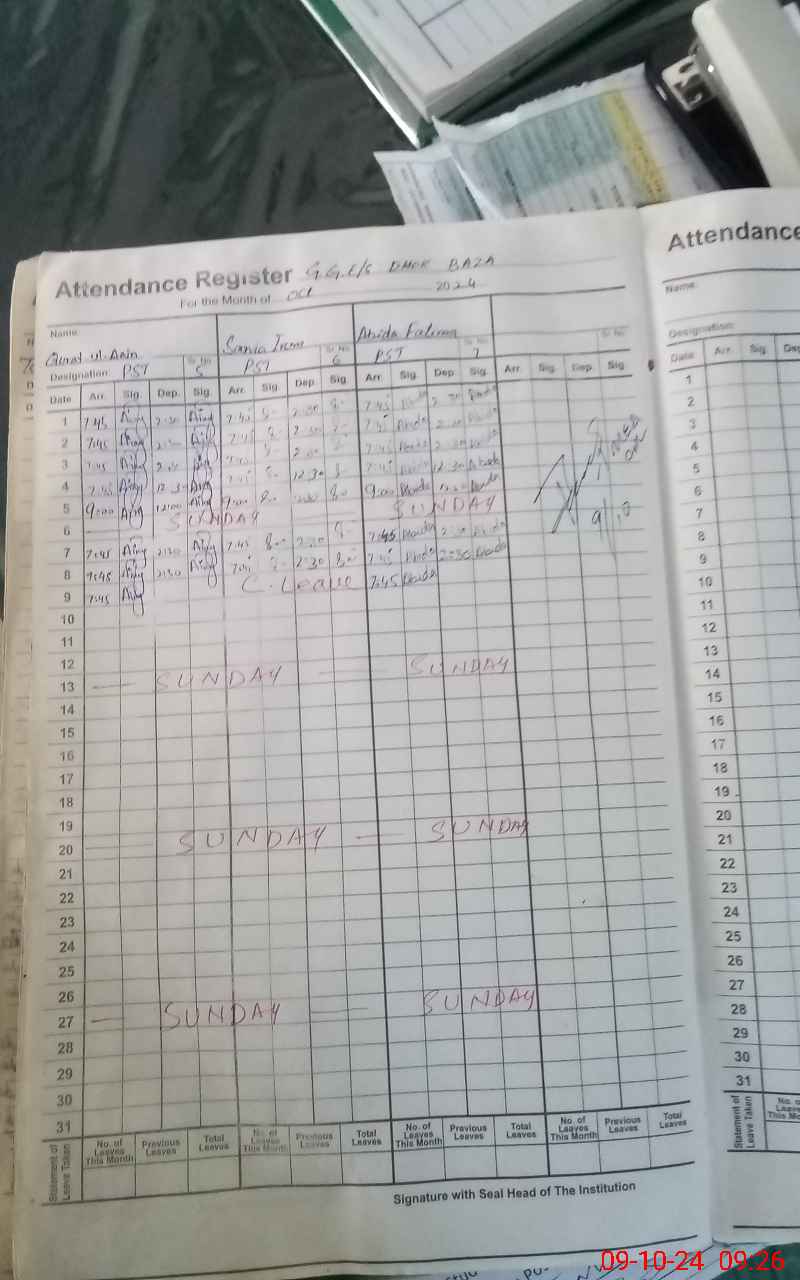 Attendance Register G.G.E/S DHOK BAZA
For the Month of Oct 2024
Name:
Qurat-ul-Aain Sr. No. 5 Sania Irum Sr. No. 6 Abida Fatima Sr. No. 7 Sr. No.
Designation: PST PST PST
Date Arr. Sig. Dep. Sig. Arr. Sig. Dep. Sig. Arr. Sig. Dep. Sig. Arr. Sig. Dep. Sig.
1 7:45 Ainy 2:30 Ainy 7:45 2:30 7:45 Abida 2:30 Abida
2 7:45 Ainy 2:30 Ainy 7:45 2:30 7:45 Abida 2:30 Abida
3 7:45 Ainy 2:30 Ainy 7:45 2:30 7:45 Abida 2:30 Abida
4 7:45 Ainy 12:30 Ainy 7:45 12:30 7:45 Abida 12:30 Abida
5 9:00 Ainy 12:00 Ainy 9:00 9:00 Abida Abida
6 SUNDAY SUNDAY
7 7:45 Ainy 2:30 Ainy 7:45 2:30 7:45 Abida 2:30 Abida
8 7:45 Ainy 2:30 Ainy 7:45 2:30 7:45 Abida 2:30 Abida
9 7:45 Ainy C. Leave 7:45 Abida
10
11
12
13 — SUNDAY — SUNDAY
14
15
16
17
18
19
20 SUNDAY — SUNDAY
21
22
23
24
25
26
27 — SUNDAY — SUNDAY
28
29
30
31
Statement of Leave Taken
No. of Leaves This Month Previous Leaves Total Leaves No. of Leaves This Month Previous Leaves Total Leaves No. of Leaves This Month Previous Leaves Total Leaves No. of Leaves This Month Previous Leaves Total Leaves
Signature with Seal Head of The Institution
Attendance
Name:
Designation:
Date Arr. Sig. Dep. Sig.
1
2
3
4
5
6
7
8
9
10
11
12
13
14
15
16
17
18
19
20
21
22
23
24
25
26
27
28
29
30
31
Statement of Leave Taken
No. of Leaves This Month
09-10-24 09:26